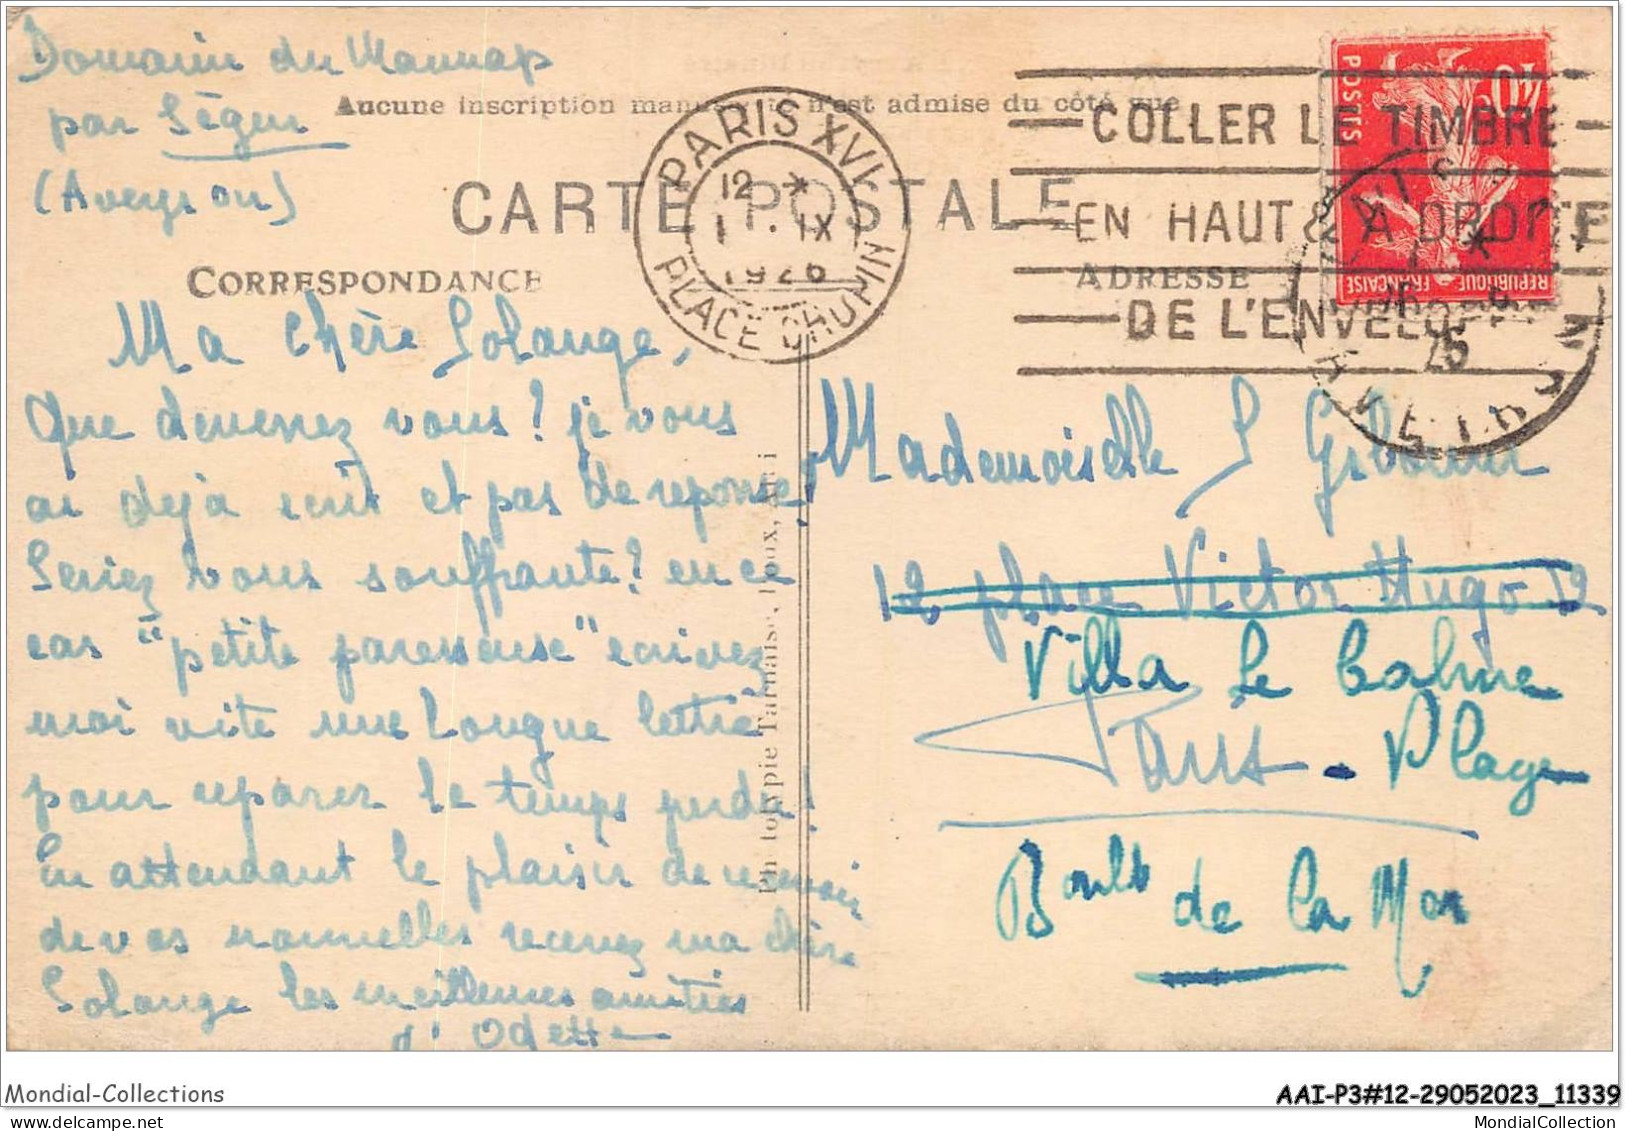 Domaine du Maunap
par Ségur
(Aveyron)
Aucune inscription manuscrite n'est admise du côté vue
CARTE POSTALE
CORRESPONDANCE
ADRESSE
PARIS XVI
12 *
1 · IX
1926
PLACE CHOPIN
COLLER LE TIMBRE
EN HAUT & A DROITE
DE L'ENVELOPPE
POSTES
40c
REPUBLIQUE FRANÇAISE
25
AVEYRON
Ma chère Solange,
Que devenez vous ? je vous
ai dejà ecrit et pas de reponse !
Seriez vous souffrante ? en ce
cas "petite paresseuse" ecrivez
moi vite une longue lettre
pour reparer le temps perdu !
En attendant le plaisir de recevoir
de vos nouvelles recevez ma chère
Solange les meilleures amitiés
d'Odette
Phototypie Tarnaise, Poux, Albi
Mademoiselle S
12 place Victor Hugo 12
Villa Le Calme
Paris-Plage
Boulv de la Mer
Mondial-Collections
AAI-P3#12-29052023_11339
MondialCollection